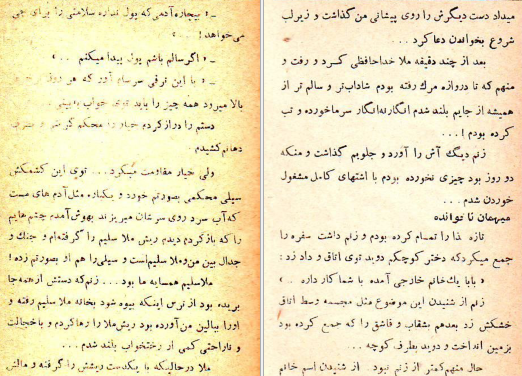 ـ « بیچاره آدمی که پول نداره سلامتی را برای چی
می‌خواهد! . . . »
ـ « اگر سالم باشم پول پیدا میکنم . . . »
ـ « با این ترقی سرسام آور که هر روز نرخ‌ها
بالا میرود همه چیز را باید توی خواب به‌بینی . . .
دستم را دراز کردم خیار را محکم گرفتم و بطرف
دهانم کشیدم.
ولی خیار مقاومت میکرد . . . توی این کشمکش
سیلی محکمی بصورتم خورد و یکباره مثل آدم های مست
که آب سرد روی سرشان میریزند بهوش آمدم چشم‌هایم
را که باز کردم دیدم ریش ملا سلیم را گرفته‌ام و جنگ و
جدال بین من و ملا سلیم است و سیلی را هم او بصورتم زده!
ملا سلیم همسایه ما بود . . . زنم که دستش از همه جا
بریده بود از ترس اینکه بیوه شود بخانه ملا سلیم رفته و
او را ببالین من آورده بود ریش ملا را رها کردم و با خجالت
و ناراحتی کمی از رختخواب بلند شدم . . .
ملا در حالیکه با یکدست ریشش را گرفته و مالش
میداد دست دیگرش را روی پیشانی من گذاشت و زیر لب
شروع بخواندن دعا کرد . . .
بعد از چند دقیقه ملا خداحافظی کرد و رفت و
منهم که تا دروازه مرگ رفته بودم شاداب‌تر و سالم تر از
همیشه از جایم بلند شدم انگار نه انگار سرما خورده و تب
کرده بودم ! . . .
زنم دیگ آش را آورد و جلویم گذاشت و منکه
دو روز بود چیزی نخورده بودم با اشتهای کامل مشغول
خوردن شدم . . .
میهمان ناخوانده
تازه غذا را تمام کرده بودم و زنم داشت سفره را
جمع میکرد که دختر کوچکم دوید توی اتاق و داد زد :
« بابا یک خانم خارجی آمده با شما کار داره . . »
زنم از شنیدن این موضوع مثل مجسمه وسط اتاق
خشکش زد بعدهم بشقاب و قاشق را که جمع کرده بود
بزمین انداخت و دوید بطرف کوچه . . .
حال منهم کمتر از زنم نبود . . از شنیدن اسم خانم